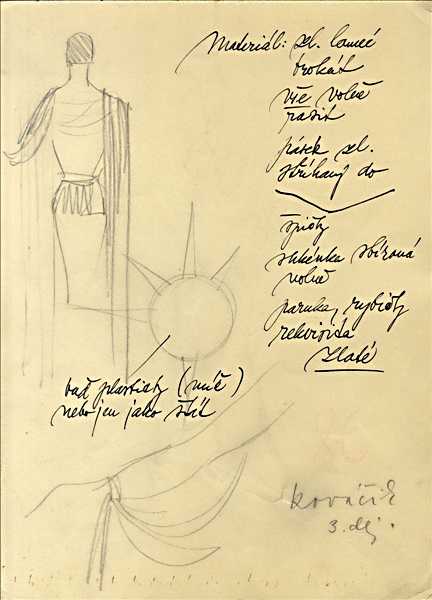 Materiál: zl. lamé
brokát
vše volně
řasit
pásek zl.
stříhaný do
špičky
sukénka sbíraná
volně
paruka,
rekvisita
zlaté
buď plastický (míč)
nebo jen jako štít
Kováčik
3. děj.